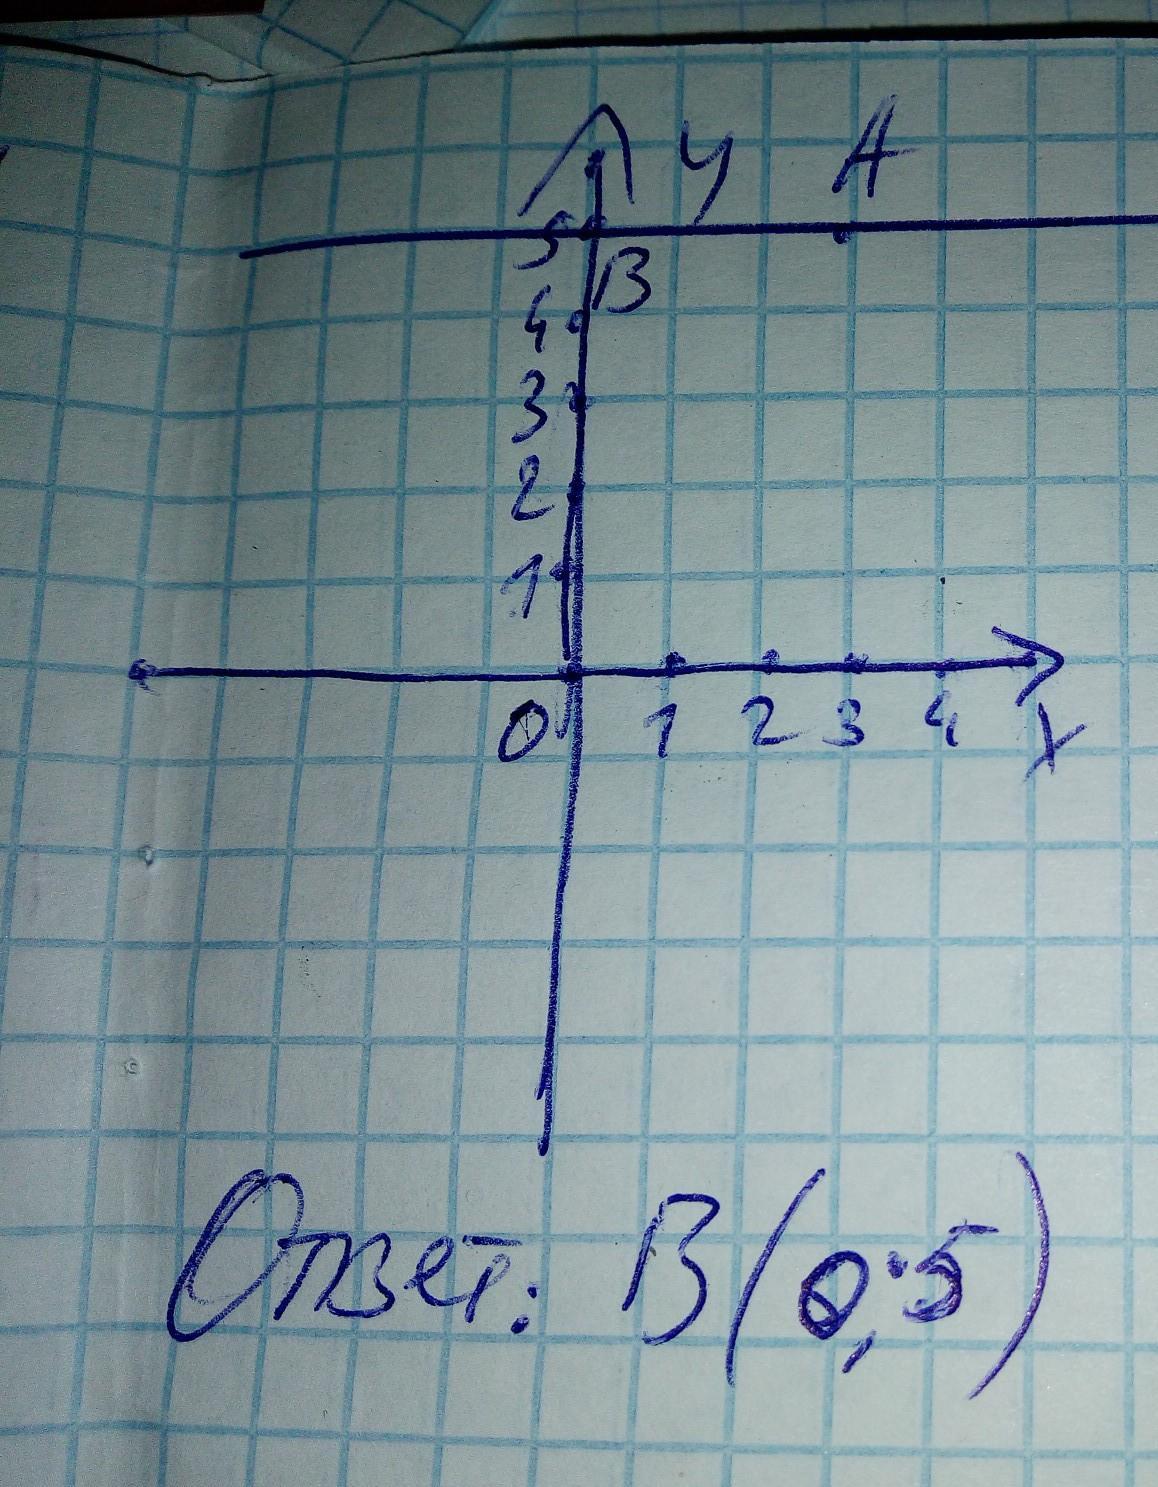 У А
5
В
4
3
2
1
0 1 2 3 4 х
Ответ: В(0;5)